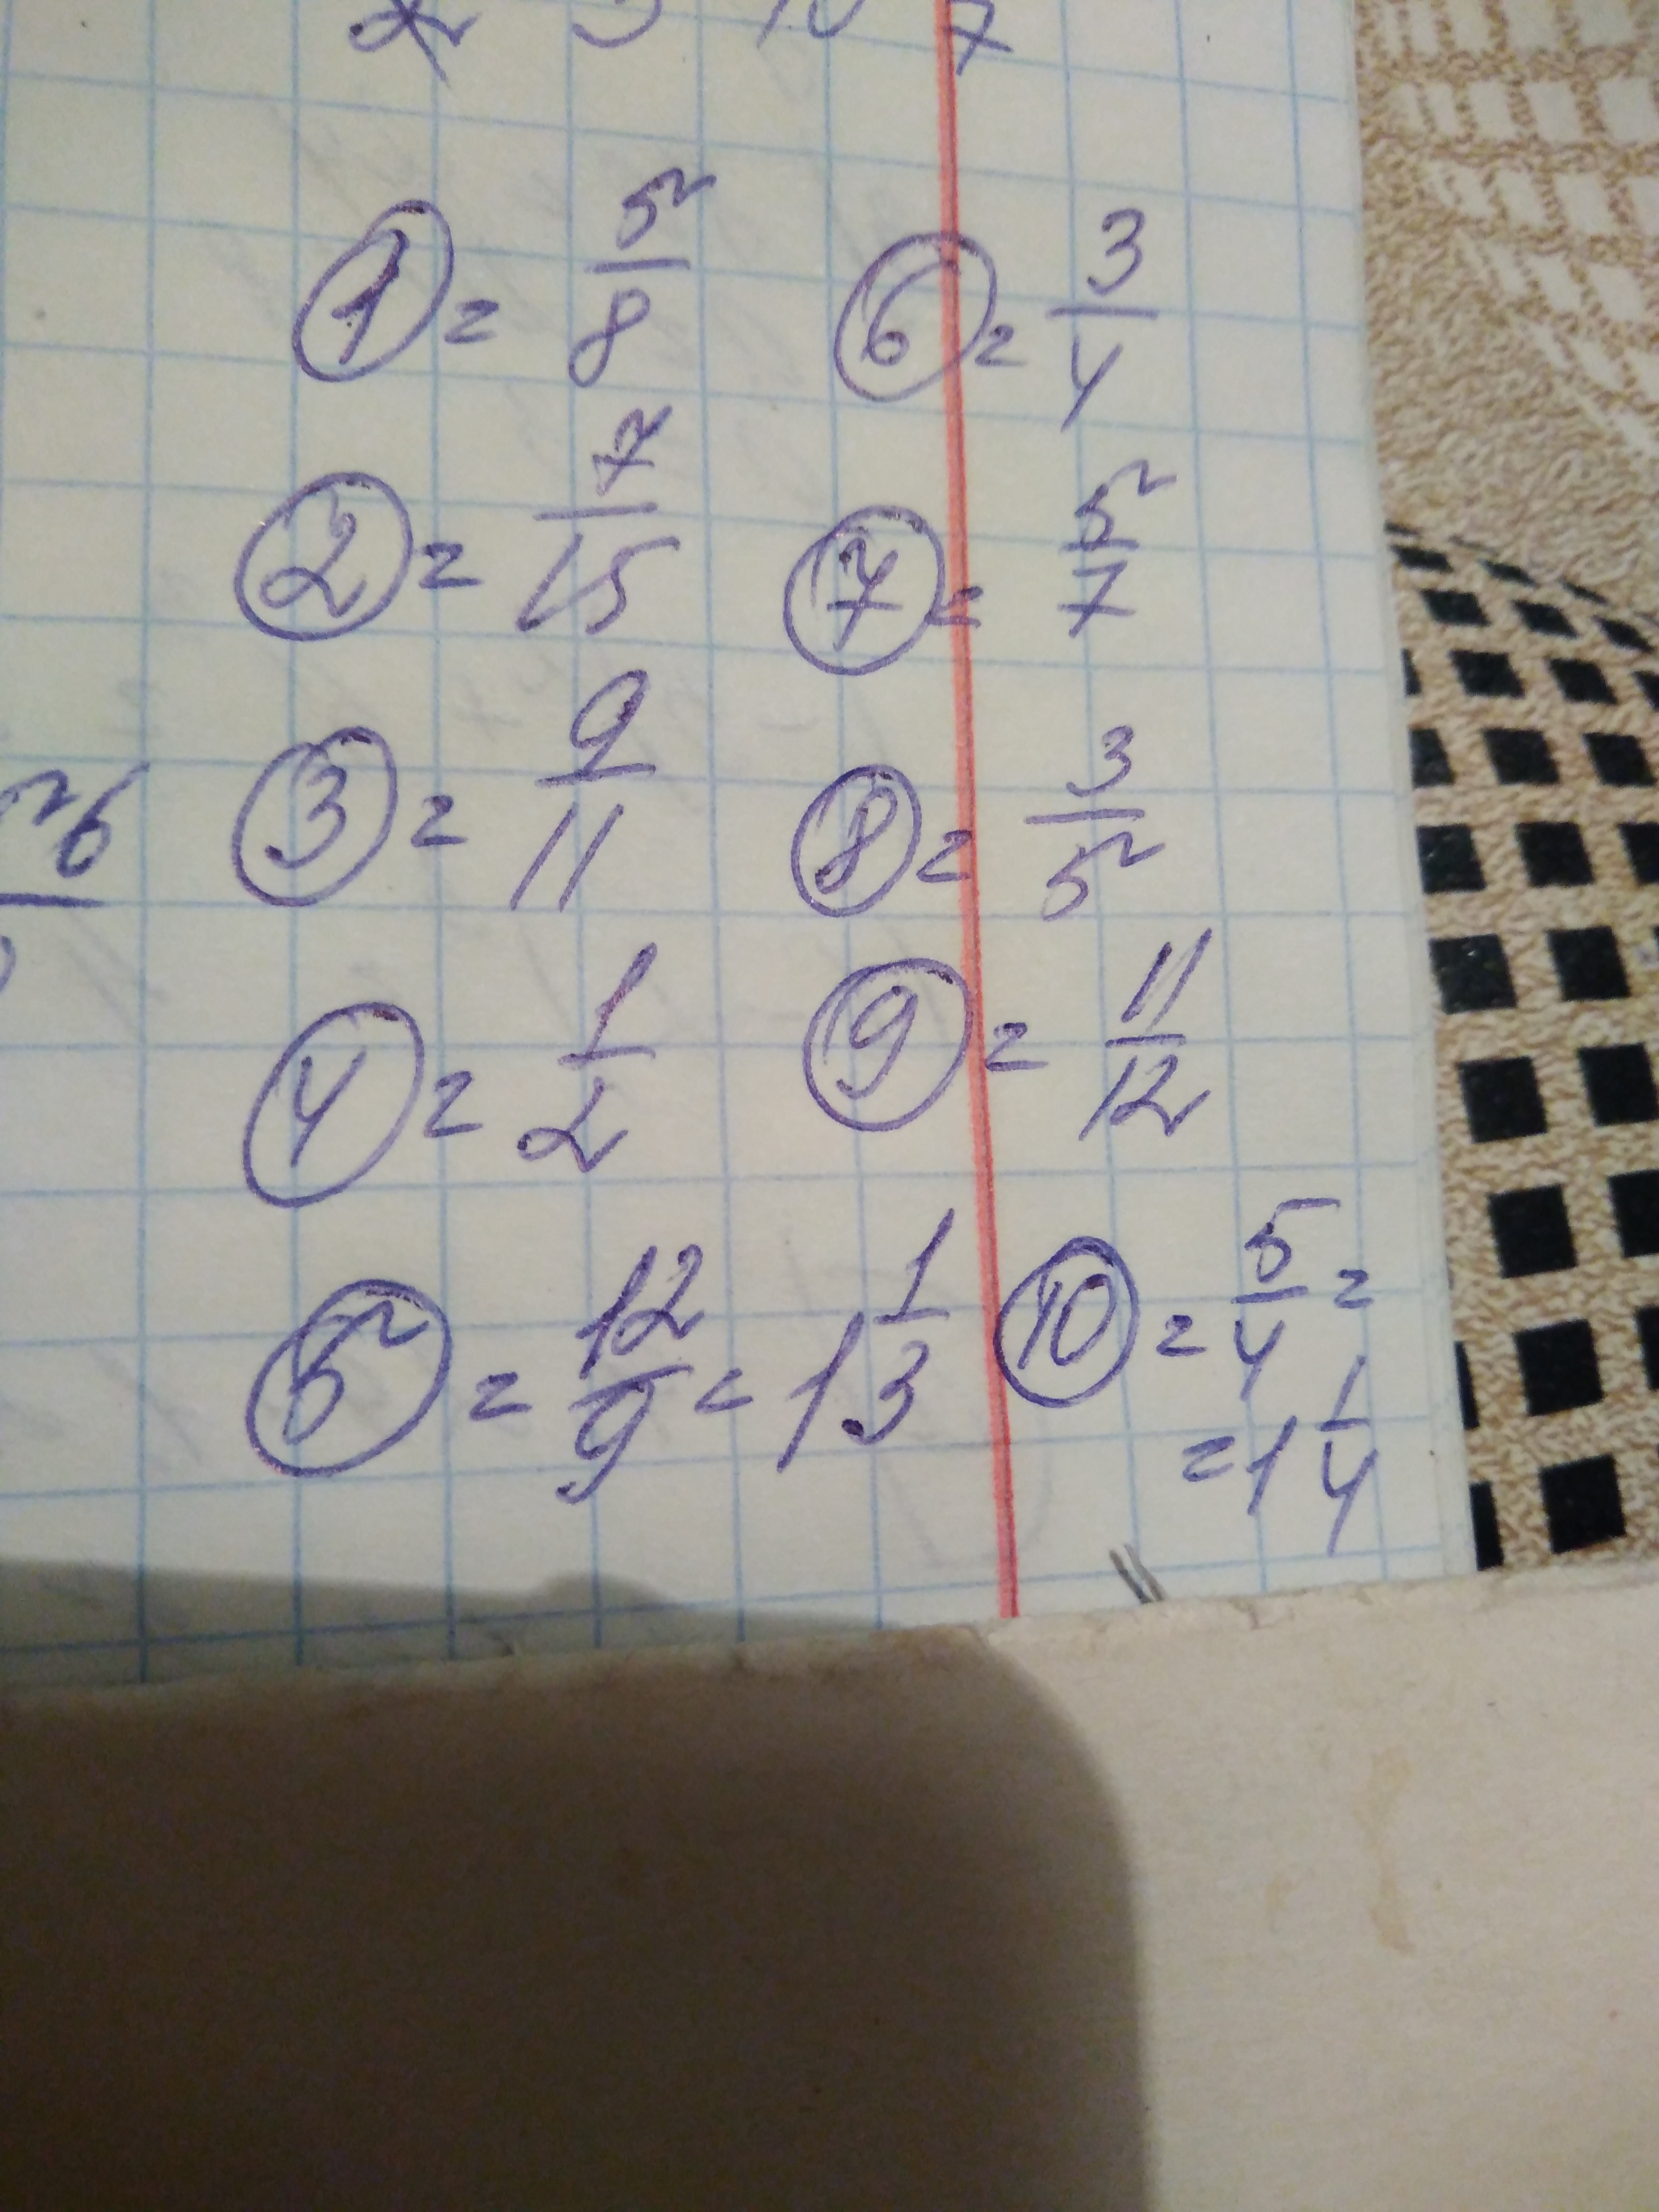 ① = 5/8
② = 7/15
③ = 9/11
④ = 1/2
⑤ = 12/9 = 1 1/3
⑥ = 3/4
⑦ = 5/7
⑧ = 3/5
⑨ = 11/12
⑩ = 5/4 =
= 1 1/4